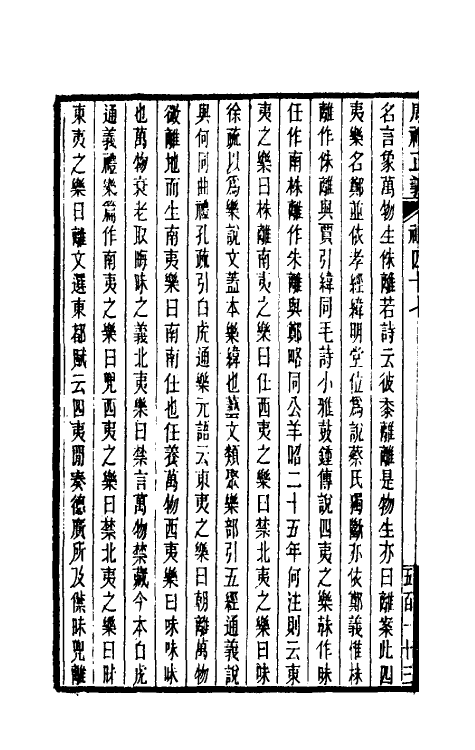 周禮正義 禮四十七 五百一十三
名言象萬物生侏離若詩云彼黍離離是物生亦曰離案此四
夷樂名鄭並依孝經緯明堂位爲說蔡氏獨斷亦依鄭義惟株
離作侏離與賈引緯同毛詩小雅鼓鍾傳說四夷之樂韎作昧
任作南株離作朱離與鄭略同公羊昭二十五年何注則云東
夷之樂曰株離南夷之樂曰任西夷之樂曰禁北夷之樂曰昧
徐疏以爲樂說文蓋本樂緯也藝文類聚樂部引五經通義說
與何同曲禮孔疏引白虎通樂元語云東夷之樂曰朝離萬物
微離地而生南夷樂曰南南任也任養萬物西夷樂曰味味昧
也萬物衰老取晦昧之義北夷樂曰禁言萬物禁藏今本白虎
通義禮樂篇作南夷之樂曰兜西夷之樂曰禁北夷之樂曰昧
東夷之樂曰離文選東都賦云四夷閒奏德廣所及僸昧兜離